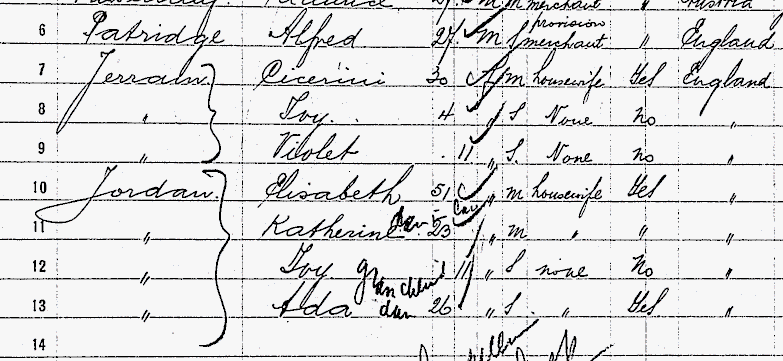 27. M M merchant "
provision
6 Patridge Alfred 27. M S merchant " England
7 Jerrain Cicerini 30 M housewife Yes England
8 " Ivy. 4 " S None No "
9 " Violet . 11 " S. None no "
10 Jordan. Elisabeth 51 " M housewife Yes "
11 " Katherine dau 23 " M " " "
12 " Ivy grandchild 11 " S none No "
13 " Ada dau 26 " S " Yes "
14